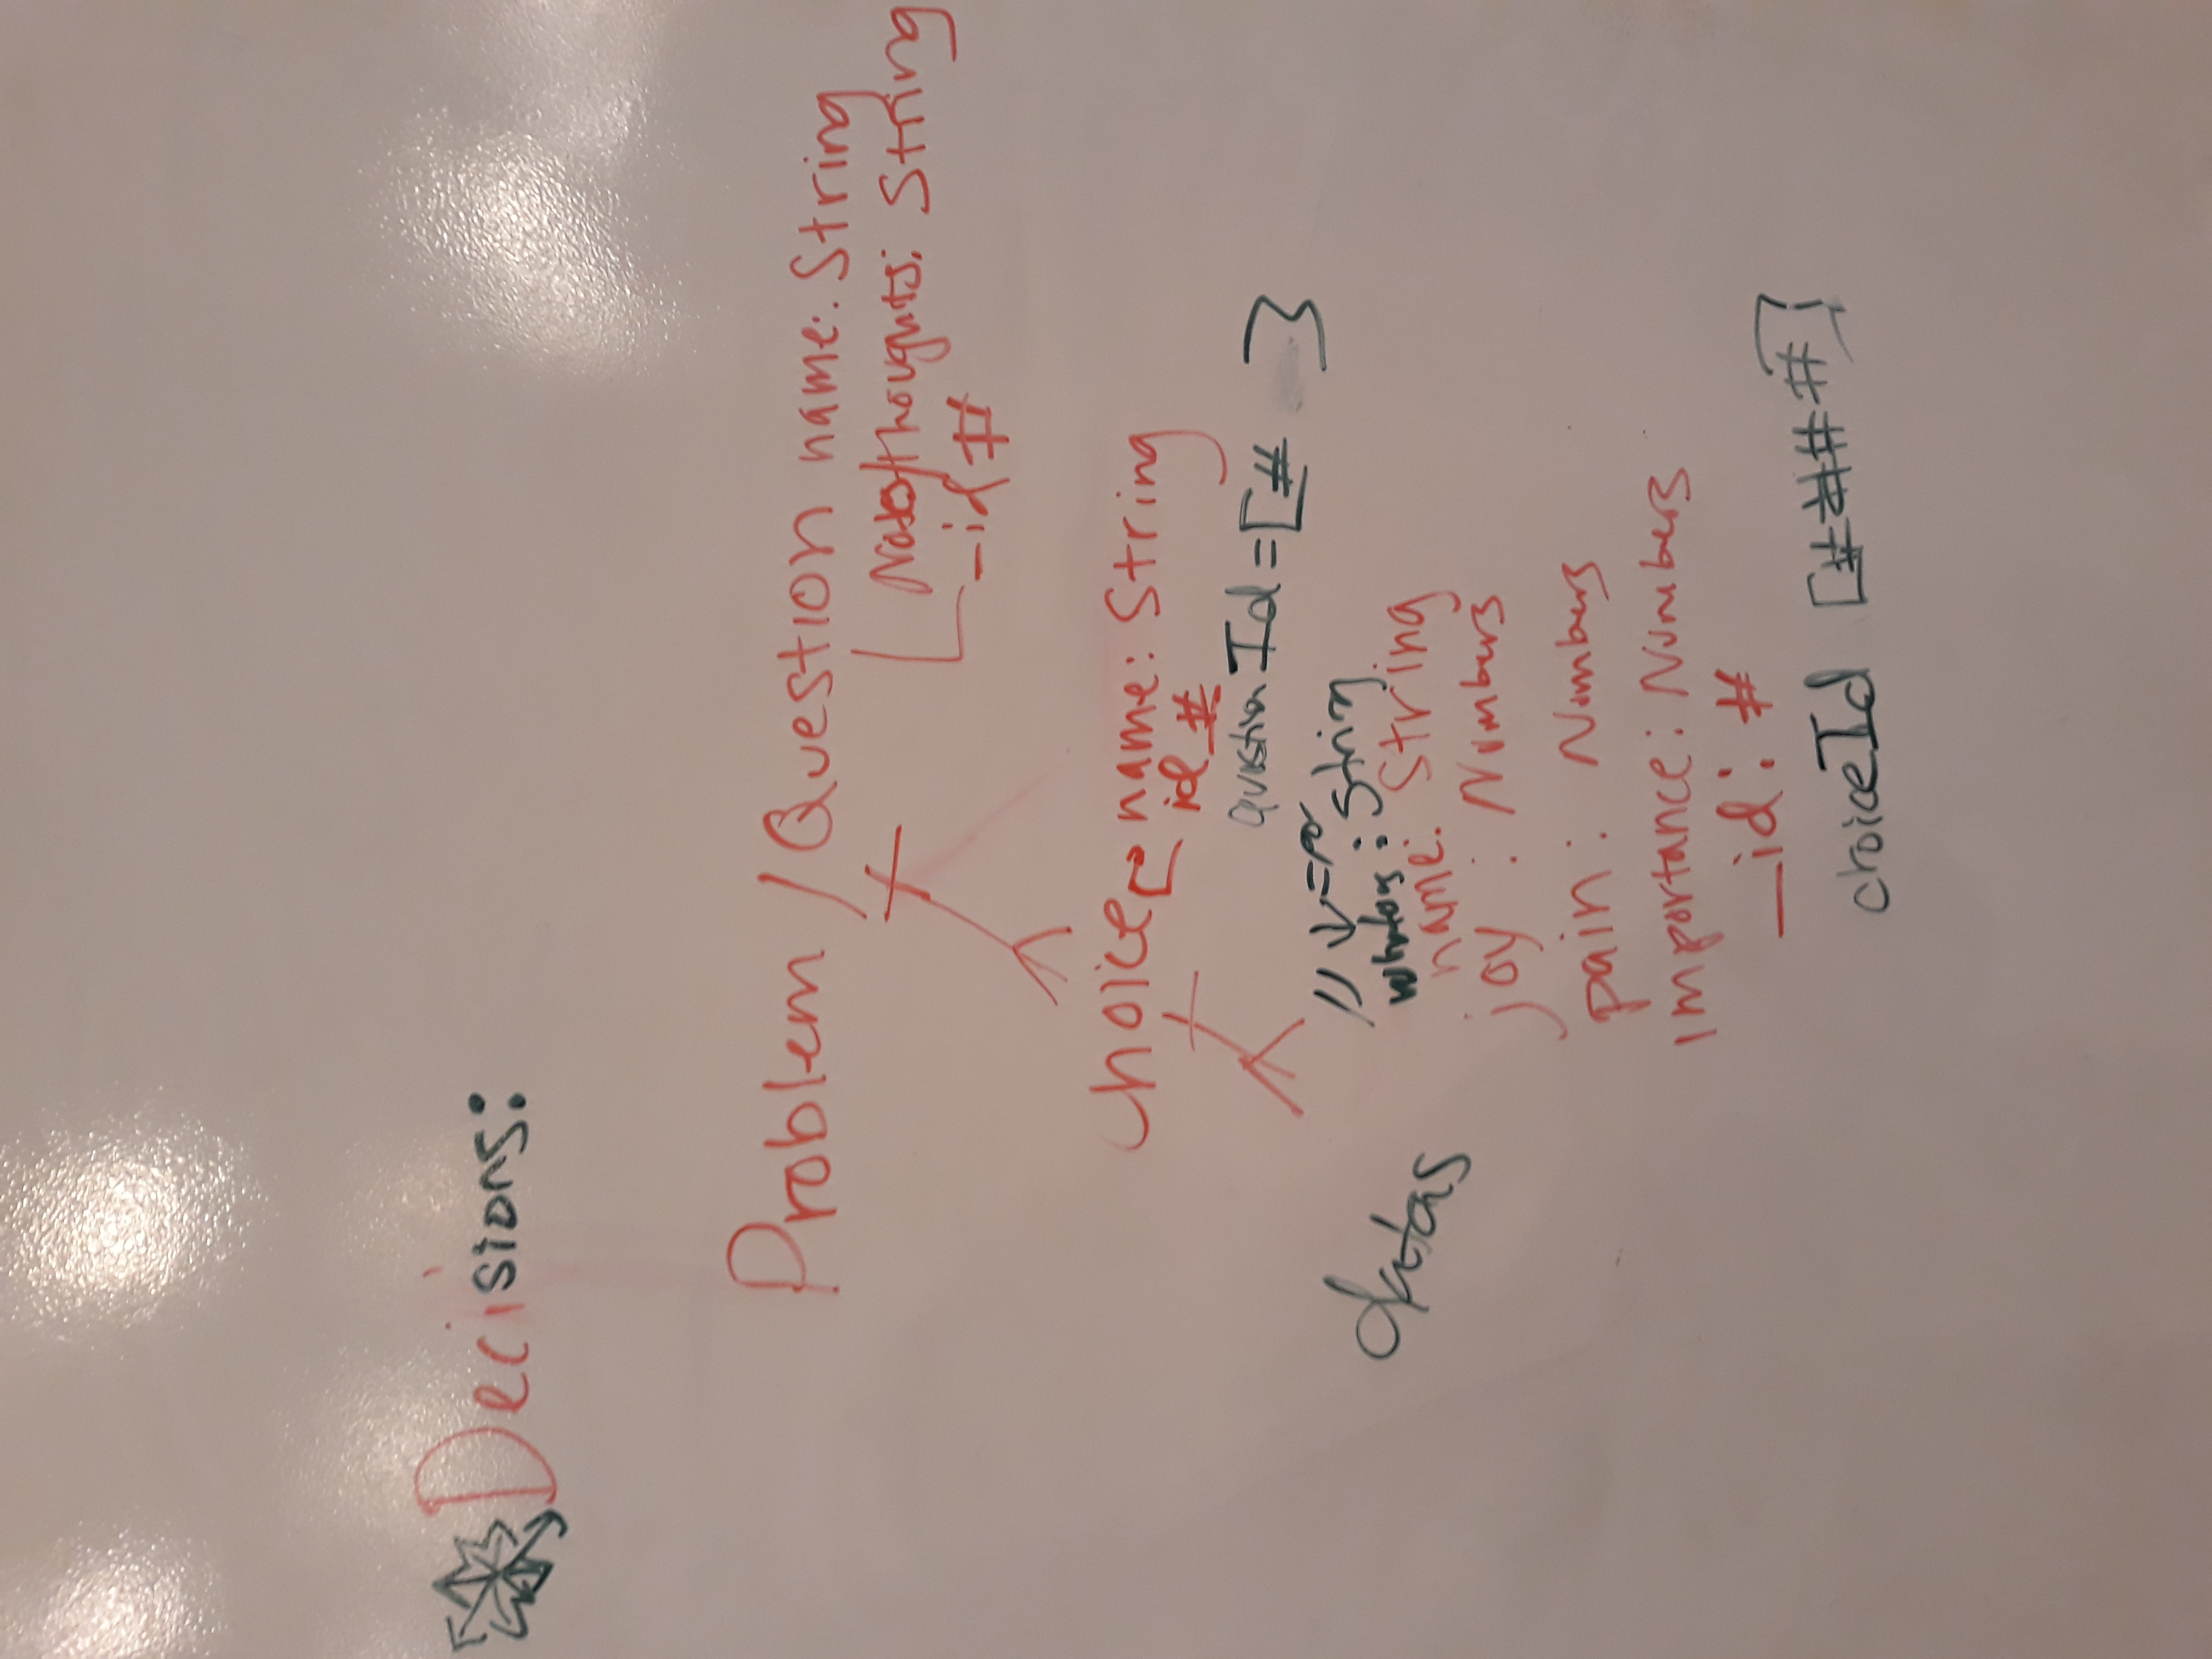 Decisions:
Problem / Question name: String
Notes/thoughts: String
_id #
choice name: String
id #
question Id = [# ]
// ↓ =
: String
datas
name: String
joy : Numbers
pain : Numbers
importance: Numbers
_id: #
choiceId [####]